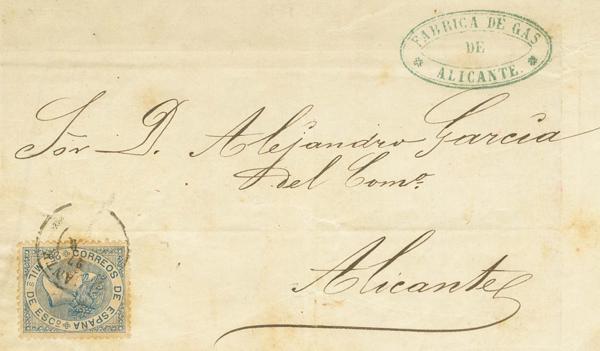 FABRICA DE GAS
DE
ALICANTE.
Sor D. Alejandro García
del Como.
Alicante
CORREOS DE ESPAÑA
MILS DE ESCO